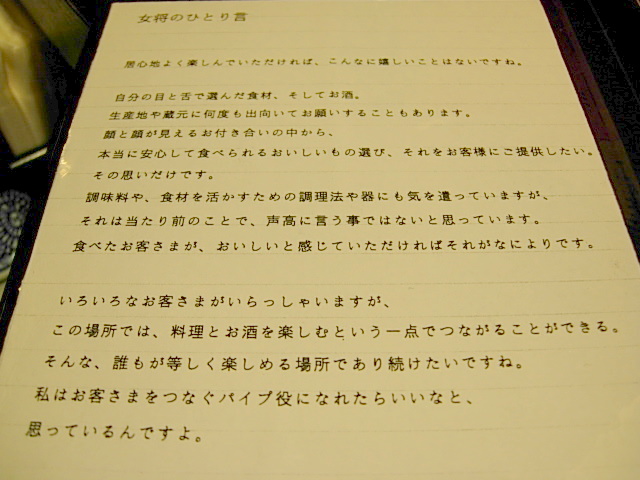 女将のひとり言
居心地よく楽しんでいただければ、こんなに嬉しいことはないですね。
自分の目と舌で選んだ食材、そしてお酒。
生産地や蔵元に何度も出向いてお願いすることもあります。
顔と顔が見えるお付き合いの中から、
本当に安心して食べられるおいしいもの選び、それをお客様にご提供したい。
その思いだけです。
調味料や、食材を活かすための調理法や器にも気を遣っていますが、
それは当たり前のことで、声高に言う事ではないと思っています。
食べたお客さまが、おいしいと感じていただければそれがなによりです。
いろいろなお客さまがいらっしゃいますが、
この場所では、料理とお酒を楽しむという一点でつながることができる。
そんな、誰もが等しく楽しめる場所であり続けたいですね。
私はお客さまをつなぐパイプ役になれたらいいなと、
思っているんですよ。